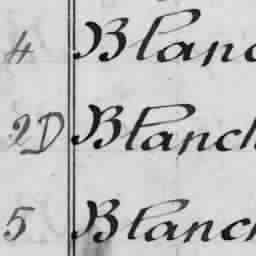 4 Blanc
2D Blanch
5 Blanch